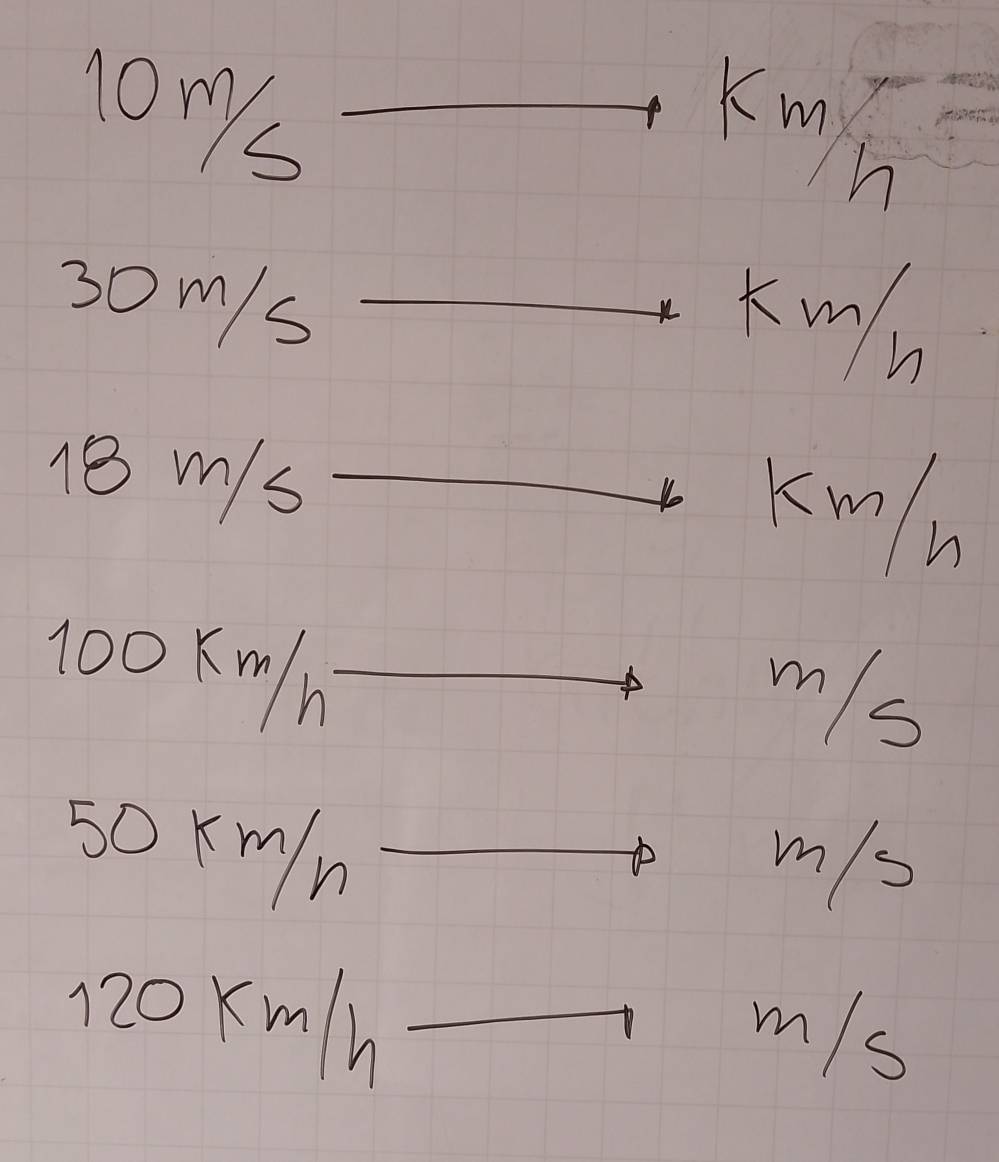 10 m/s → Km/h
30 m/s → Km/h
18 m/s → Km/h
100 Km/h → m/s
50 Km/h → m/s
120 Km/h → m/s